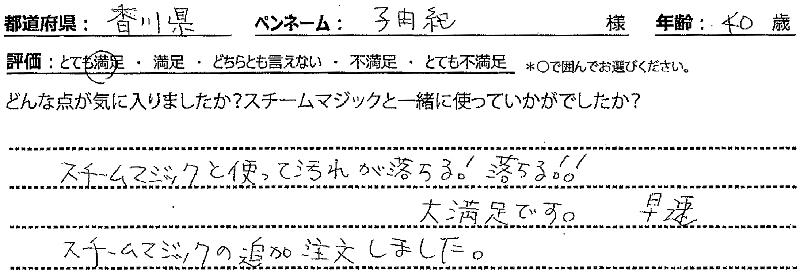 都道府県：香川県 ペンネーム：子由紀 様 年齢：40 歳
評価：とても満足 ・ 満足 ・ どちらとも言えない ・ 不満足 ・ とても不満足 ＊○で囲んでお選びください。
どんな点が気に入りましたか？スチームマジックと一緒に使っていかがでしたか？
スチームマジックと使って汚れが落ちる！落ちる！！
大満足です。 早速
スチームマジックの追加注文しました。